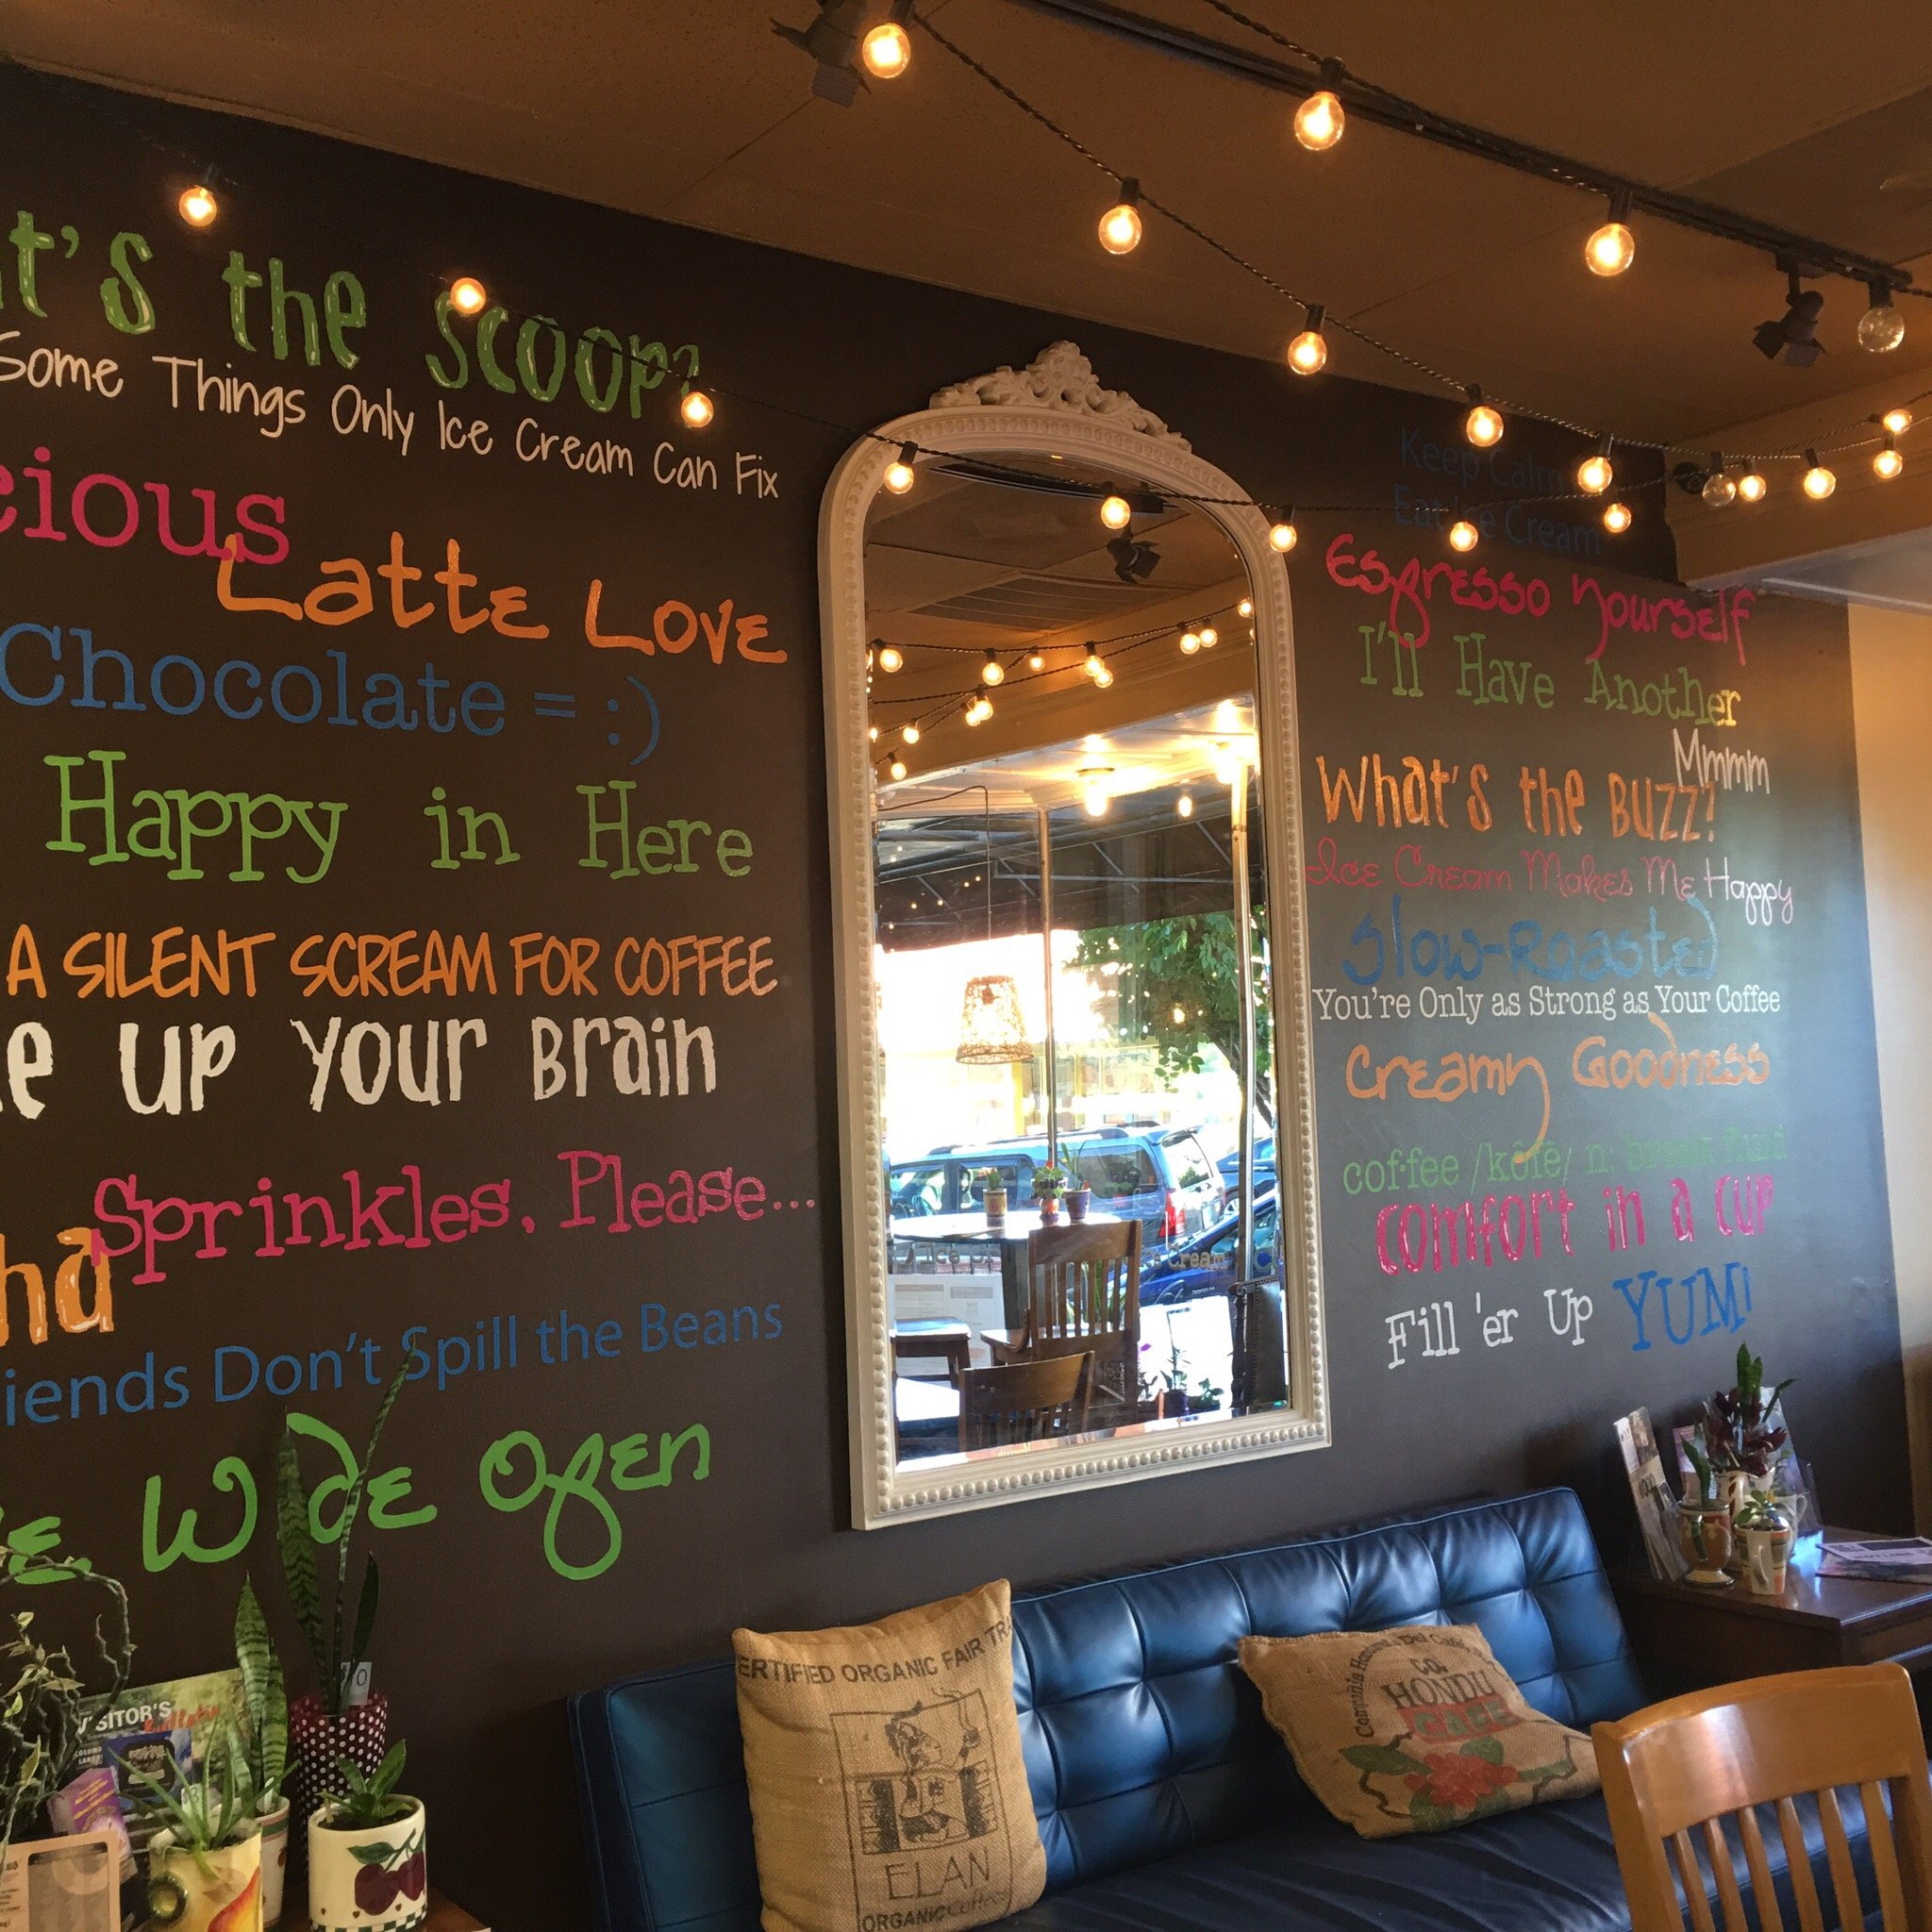 t's the Scoop?
Some Things Only Ice Cream Can Fix
cious
Latte Love
Chocolate = :)
Happy in Here
A SILENT SCREAM FOR COFFEE
e up your Brain
Sprinkles, Please...
ha
iends Don't Spill the Beans
e, Wide Open
Keep Calm
Eat Ice Cream
Espresso Yourself
I'll Have Another
Mmmm
What's the Buzz?
Ice Cream Makes Me Happy
Slow-Roasted
You're Only as Strong as Your Coffee
Creamy Goodness
cof·fee /kôfē/ n.
Comfort in a Cup
Fill 'er Up YUM!
ERTIFIED ORGANIC FAIR TRA
ELAN
ORGANIC Coffees
HONDU
CAFE
VISITOR'S